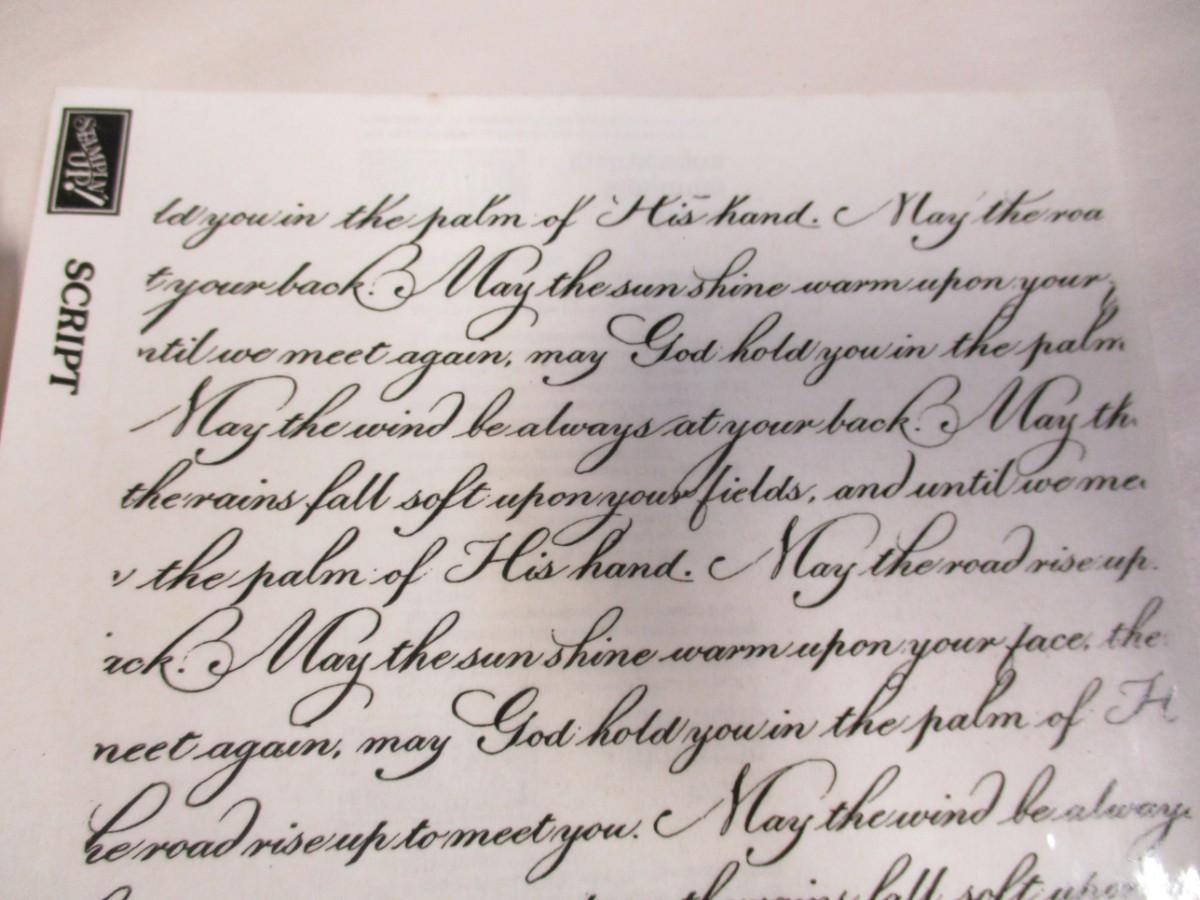 STAMPIN' UP!
SCRIPT
ld you in the palm of His hand. May the roa
t your back. May the sun shine warm upon your
ntil we meet again, may God hold you in the palm
May the wind be always at your back. May th
the rains fall soft upon your fields, and until we me
the palm of His hand. May the road rise up
ack. May the sun shine warm upon your face, the
meet again, may God hold you in the palm of H
he road rise up to meet you. May the wind be always
the rains fall soft upon